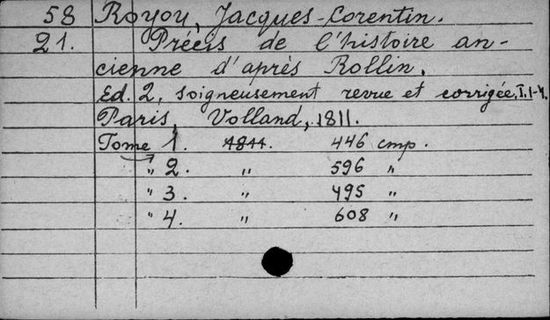 58 Royou, Jacques-Corentin.
21. Précis de l'histoire an-
cienne d'après Rollin.
Ed. 2, soigneusement revue et corrigée, T. 1-4.
Paris, Volland, 1811.
Tome 1. 1811. 446 cmp.
" 2. " 596 "
" 3. " 495 "
" 4. " 608 "